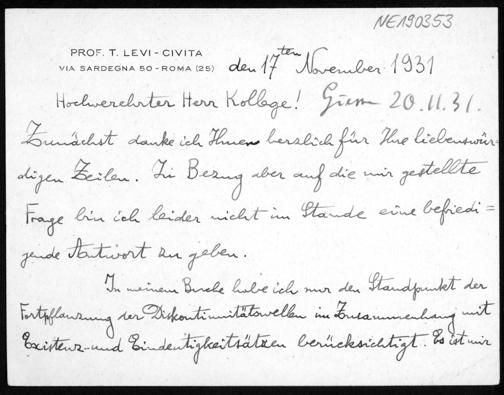 NE190353
PROF. T. LEVI-CIVITA
VIA SARDEGNA 50 - ROMA (25)
den 17ten November 1931
Hochverehrter Herr Kollege!
20.11.31.
Zunächst danke ich Ihnen herzlich für Ihre liebenswür-
digen Zeilen. In Bezug aber auf die mir gestellte
Frage bin ich leider nicht im Stande eine befriedi=
gende Antwort zu geben.
In meinem Buche habe ich nur den Standpunkt der
Fortpflanzung der Diskontinuitätswellen im Zusammenhang mit
Existenz- und Eindentigkeitsätzen berücksichtigt. Es ist mir